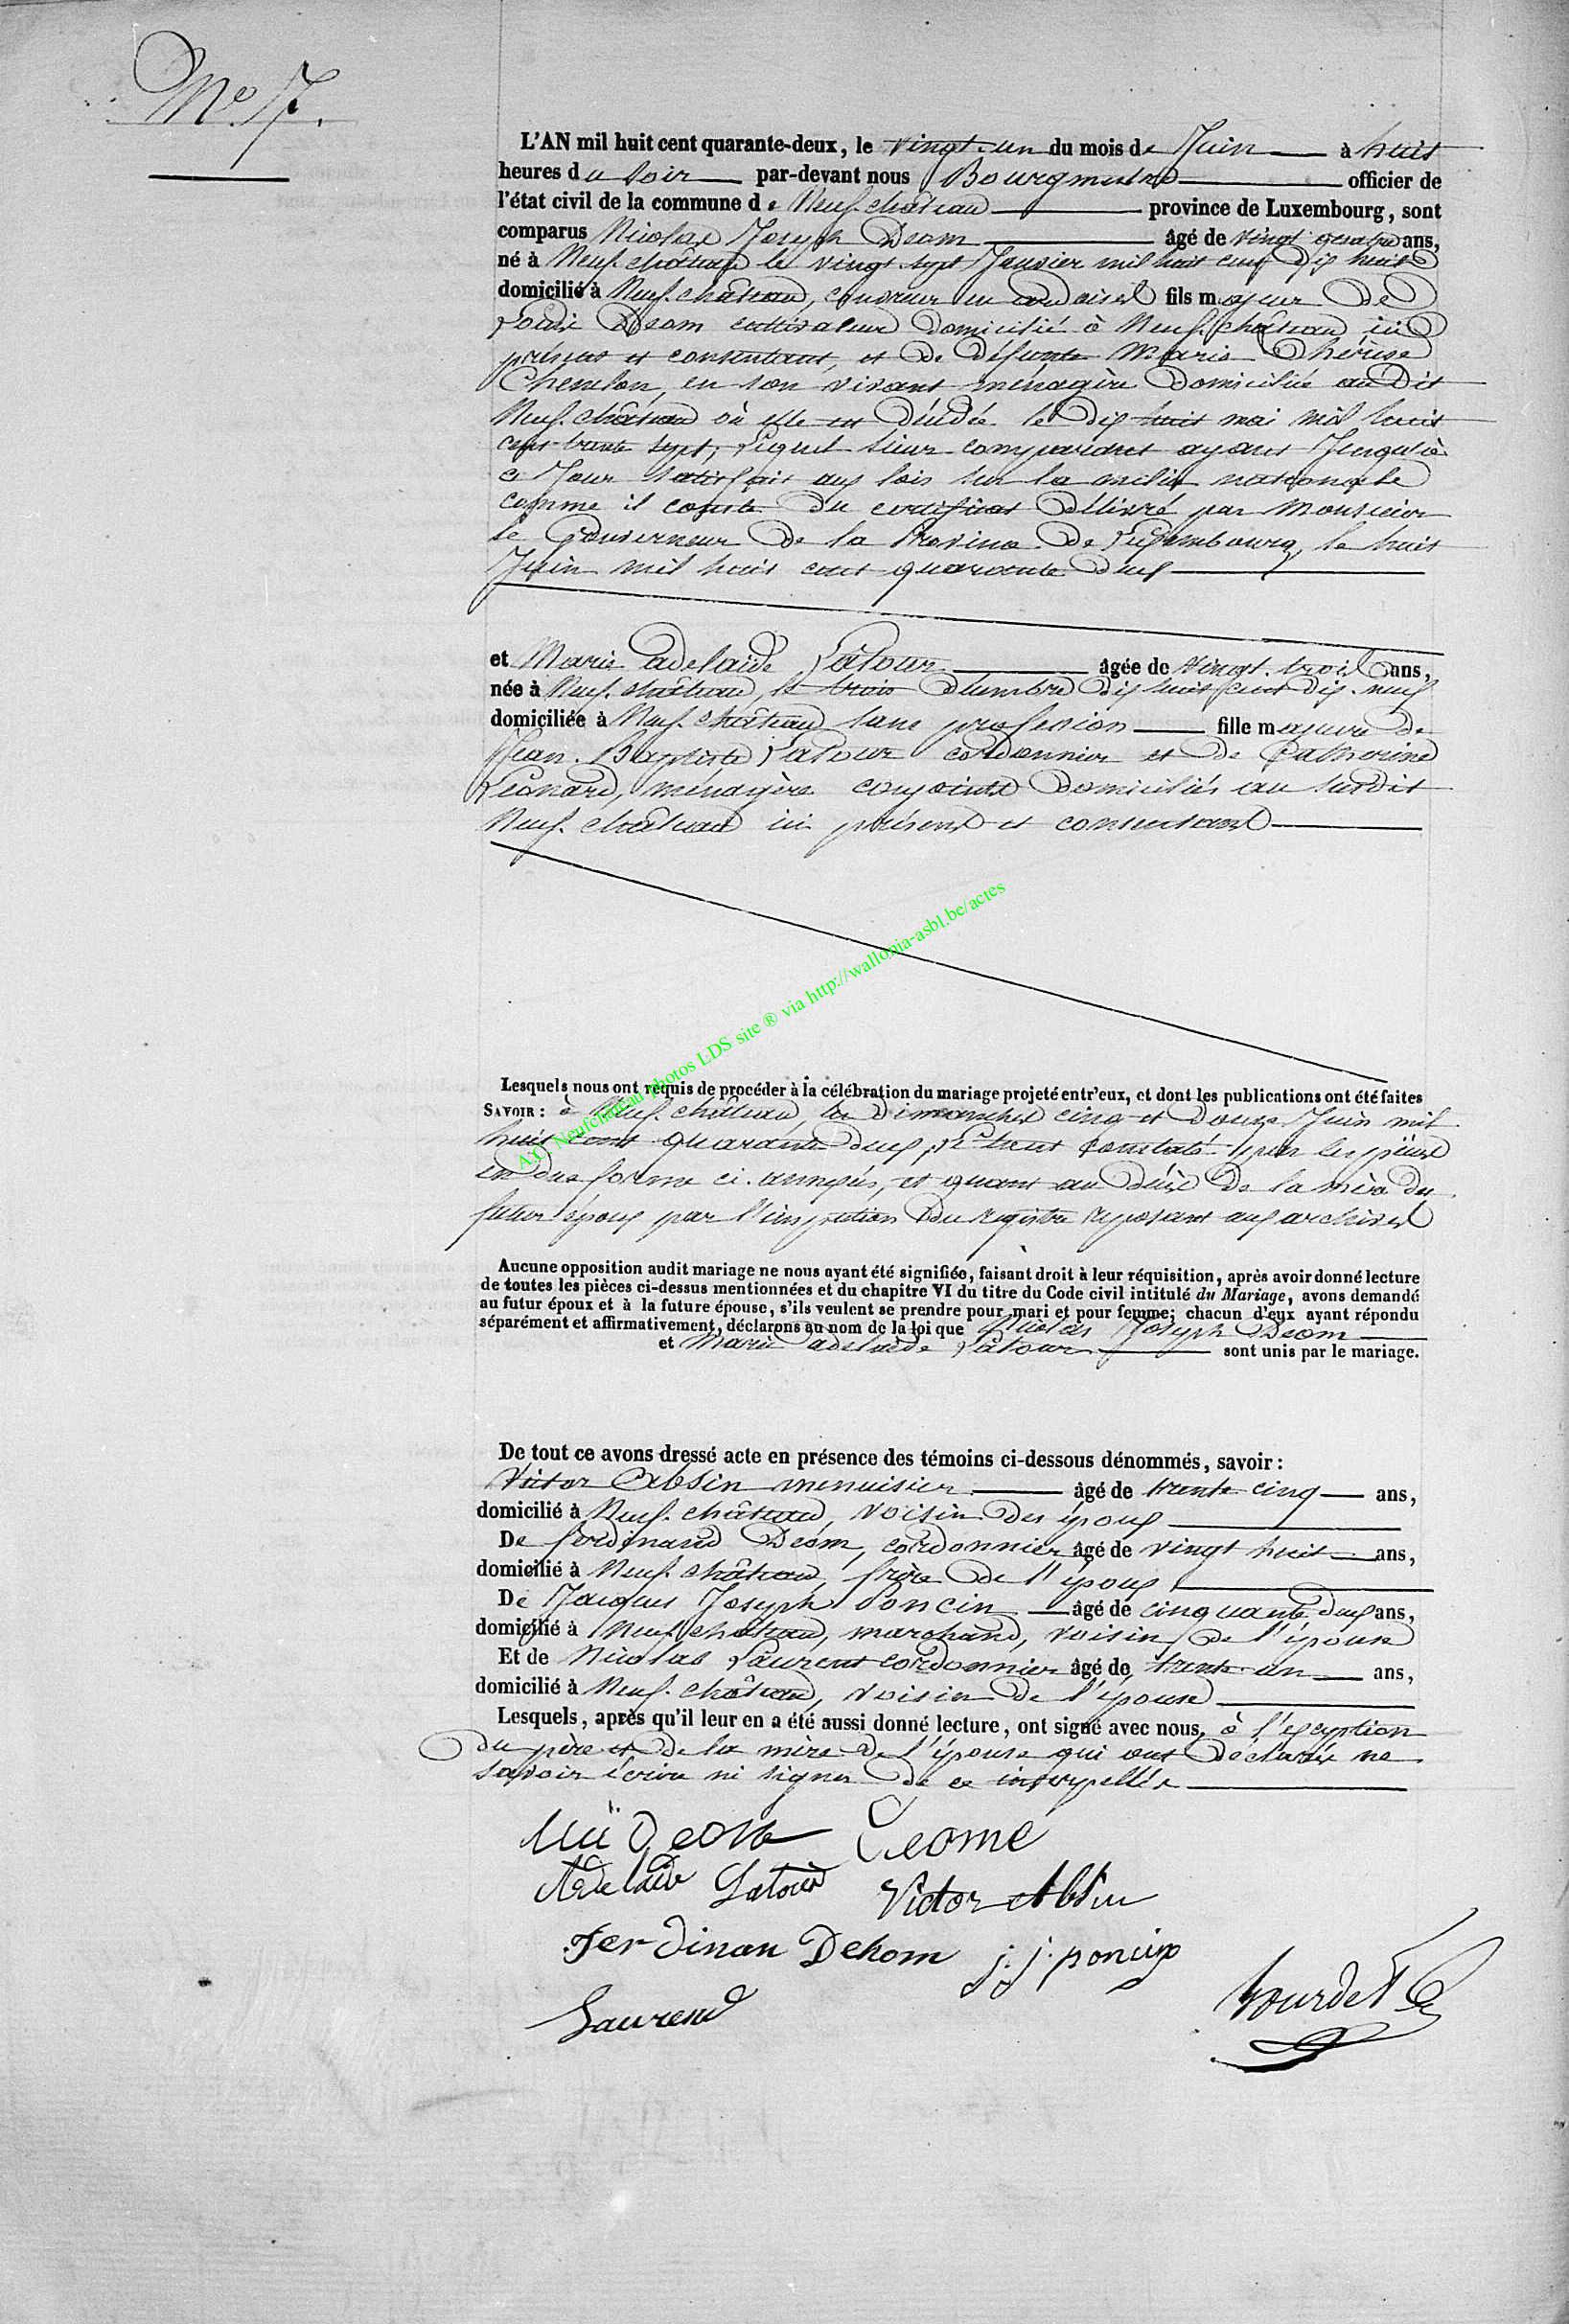 No 7.
L'AN mil huit cent quarante-deux, le vingt-un du mois de Juin à huit
heures du soir par-devant nous Bourgmestre officier de
l'état civil de la commune de Neuf-château province de Luxembourg, sont
comparus Nicolas Joseph Deom âgé de vingt quatre ans,
né à Neuf-château le vingt sept Janvier mil huit cent dix huit
domicilié à Neuf-château, couvreur en ardoises fils majeur de
Louis Deom cultivateur domicilié à Neuf-château ici
présent et consentant, et de défunte Marie Thérèse
en son vivant ménagère domiciliée au dit
Neuf-château où elle est décédée le dix huit mai mil huit
cent trente sept; Lequel sieur comparant ayant Jusqu'à
ce Jour satisfait aux lois sur la milice nationale
comme il conste du certificat délivré par Monsieur
le Gouverneur de la Province de Luxembourg, le huit
Juin mil huit cent quarante deux
et Marie Adelaïde Latour âgée de vingt-trois ans,
née à Neuf-château, le trois dix huit cent dix-neuf
domiciliée à Neuf-château sans profession fille majeure de
Jean-Baptiste Latour cordonnier et de Catherine
Leonard, ménagère conjoints domiciliés au susdit
Neuf-château ici présents et consentants
Lesquels nous ont requis de procéder à la célébration du mariage projeté entr'eux, et dont les publications ont été faites
SAVOIR: à Neuf-château, les dimanches cinq et douze Juin mil
huit cent quarante deux, le tout constaté par les pièces
en due forme ci-annexées, et quant au décès de la mère du
futur époux par l'inspection du registre reposant aux archives
Aucune opposition audit mariage ne nous ayant été signifiée, faisant droit à leur réquisition, après avoir donné lecture
de toutes les pièces ci-dessus mentionnées et du chapitre VI du titre du Code civil intitulé du Mariage, avons demandé
au futur époux et à la future épouse, s'ils veulent se prendre pour mari et pour femme; chacun d'eux ayant répondu
séparément et affirmativement, déclarons au nom de la loi que Nicolas Joseph Deom
et Marie adelaïde Latour sont unis par le mariage.
De tout ce avons dressé acte en présence des témoins ci-dessous dénommés, savoir:
Victor Absin menuisier âgé de trente cinq ans,
domicilié à Neuf-château, voisin des époux
De ferdinand Deom, cordonnier âgé de vingt huit ans,
domicilié à Neuf-château, frère de l'époux
De Jacques Joseph Poncin âgé de cinquante deux ans,
domicilié à Neuf-château, marchand, voisin de l'épouse
Et de Nicolas Laurent cordonnier âgé de trente-un ans,
domicilié à Neuf-château, voisin de l'épouse
Lesquels, après qu'il leur en a été aussi donné lecture, ont signé avec nous, à l'exception
du père et de la mère de l'épouse qui ont déclarés ne
savoir écrire ni signer de ce interpellés
Deom
Adelaide Latour Victor Absin
Ferdinan Dehom j. j. poncin
Laurend
Bourdet
A.C. Neufchateau photos LDS site ® via http://wallonia-asbl.be/actes